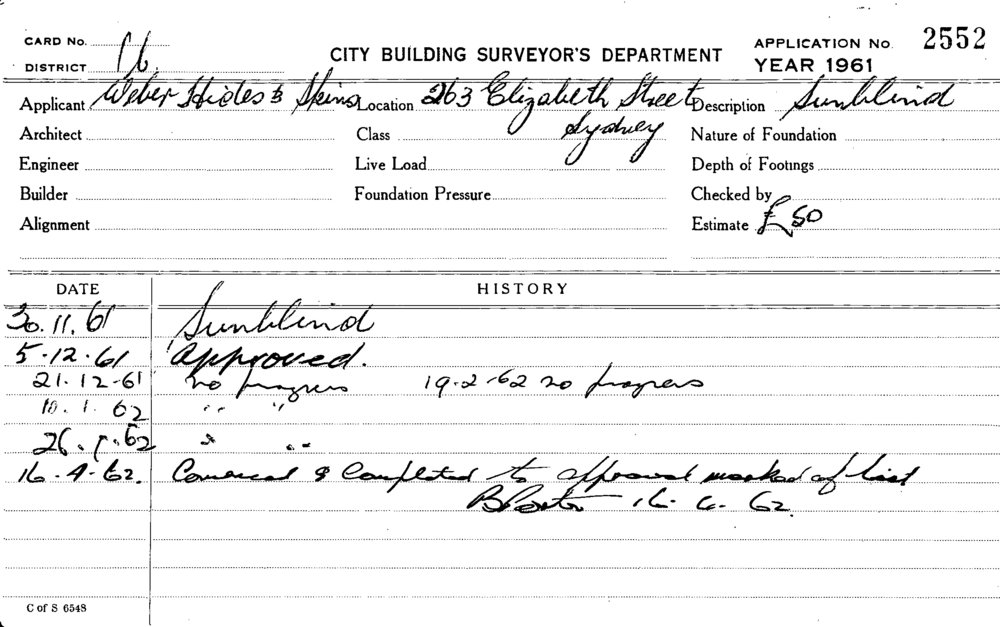 CARD No. 16
DISTRICT
CITY BUILDING SURVEYOR'S DEPARTMENT
APPLICATION No. 2552
YEAR 1961
Applicant Weber Hides & Skins Location 263 Elizabeth Street Description Sunblind
Sydney
Architect Class Nature of Foundation
Engineer Live Load Depth of Footings
Builder Foundation Pressure Checked by
Alignment Estimate £50
DATE HISTORY
30.11.61 Sunblind
5.12.61 Approved.
21.12.61 no progress 19.2.62 no progress
10.1.62 " "
26.1.62 " "
16.4.62. Commenced & Completed to approval marked of list
16.4.62.
C of S 6548